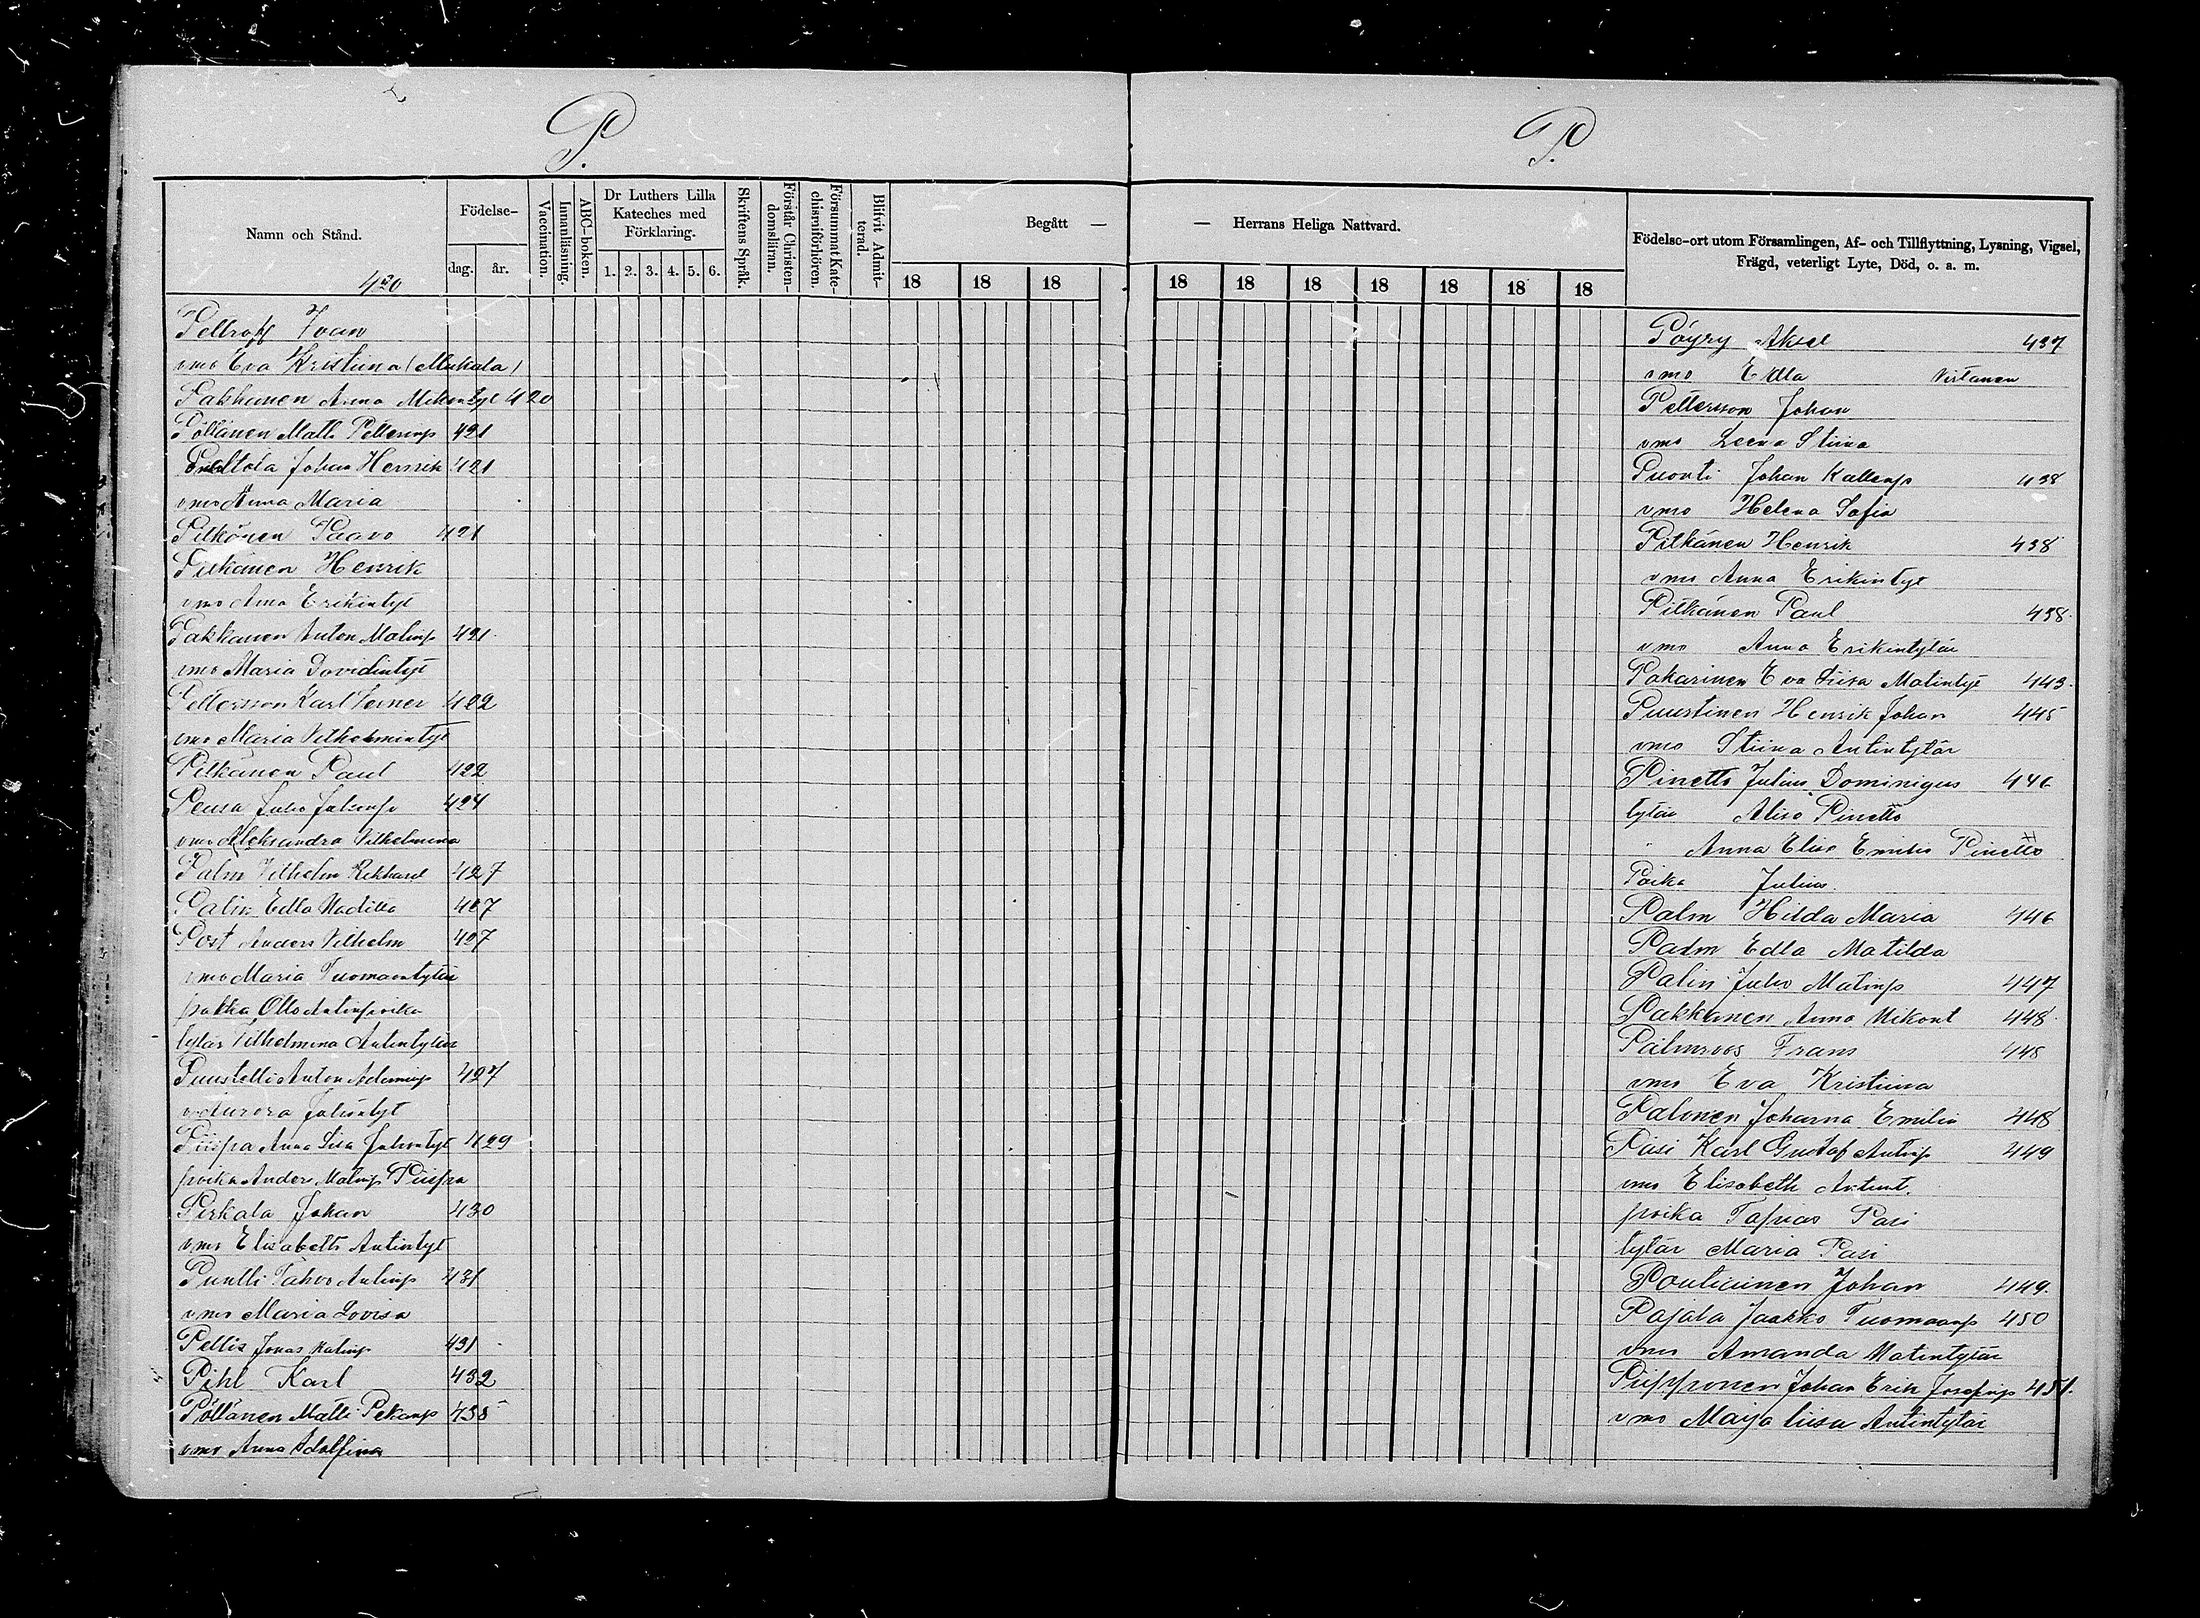 P.
P.
Namn och Stånd.
Födelse-
dag.
år.
Vaccination.
Innanläsning.
ABC-boken.
Dr Luthers Lilla Kateches med Förklaring.
1. 2. 3. 4. 5. 6.
Skriftens Språk.
Förstår Christendomsläran.
Försummat Katechismiförhören.
Blifvit Admitterad.
Begått —
— Herrans Heliga Nattvard.
18 18 18 18 18 18 18 18 18 18
Födelse-ort utom Församlingen, Af- och Tillflyttning, Lysning, Vigsel,
Frägd, veterligt Lyte, Död, o. a. m.
420
Pettroff Ivan
vmo Eva Kristiina (Mukala)
Pakkanen Anna Mikontyt 420
Pöllänen Matti Pettersnp 421
Peltola Johan Henrik 421
vmo Anna Maria
Pitkänen Paavo 421
Pitkänen Henrik
vmo Anna Erikintyt
Pakkanen Anton Matinp 421
vmo Maria Davidintyt
Pettersson Karl Verner 422
vmo Maria Vilhelmintyt
Pitkänen Paul 422
Peusa Juho Juhonp 424
vmo Aleksandra Vilhelmina
Palm Vilhelm Rikhard 427
Palin Edla 427
Post Anders Vilhelm 427
vmo Maria Tuomaantytär
pakka Otto Antinpoika
tytär Vilhelmina Antintytär
Puustelli Anton Adaminp 427
v Aurora Juhontyt
Piispa Anna Liisa Juhontyt 429
poika Anders Matinp Piispa
Pirkala Johan 430
vmo Elisabeth Antintyt
Puntti Tahvo Antinp 431
vmo Maria Lovisa
Pellis Jonas 431
Pihl Karl 432
Pöllänen Matti Pekanp 435
vmo Anna Adolfina
Pöyry Aksel 437
vmo Edla Virtanen
Pettersson Johan
vmo Leena Stiina
Puonti Johan Kallenp 438
vmo Helena Sofia
Pitkänen Henrik 438
vmo Anna Erikintyt
Pitkänen Paul 438.
vmo Anna Erikintytär
Pakarinen Eva Liisa Matintyt 443.
Puustinen Henrik Johan 445
vmo Stiina Antintytär
Pinetto Julius Dominigus 446
tytär Alise Pinetto
" Anna Elise Emilia Pinetto
Poika Julius.
Palm Hilda Maria 446
Palm Edla Matilda
Palin Juho Matinp 447
Pakkanen Anna Mikont 448.
Palmroos Frans 448
vmo Eva Kristiina
Palonen Johanna Emilia 448
Pasi Karl Gustaf Antinp 449
vmo Elisabeth Antint.
poika Tapuas Pasi
tytär Maria Pasi
Poutiainen Johan 449.
Pajala Jaakko Tuomaanp 450
vmo Amanda Matintytär
Piipponen Johan Erik Josefinp 451.
vmo Maija Liisa Antintytär